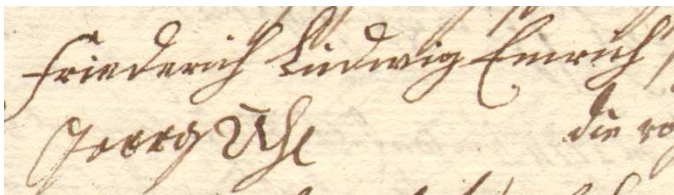 Friederich Ludwig Emrich
Georg Uhl die